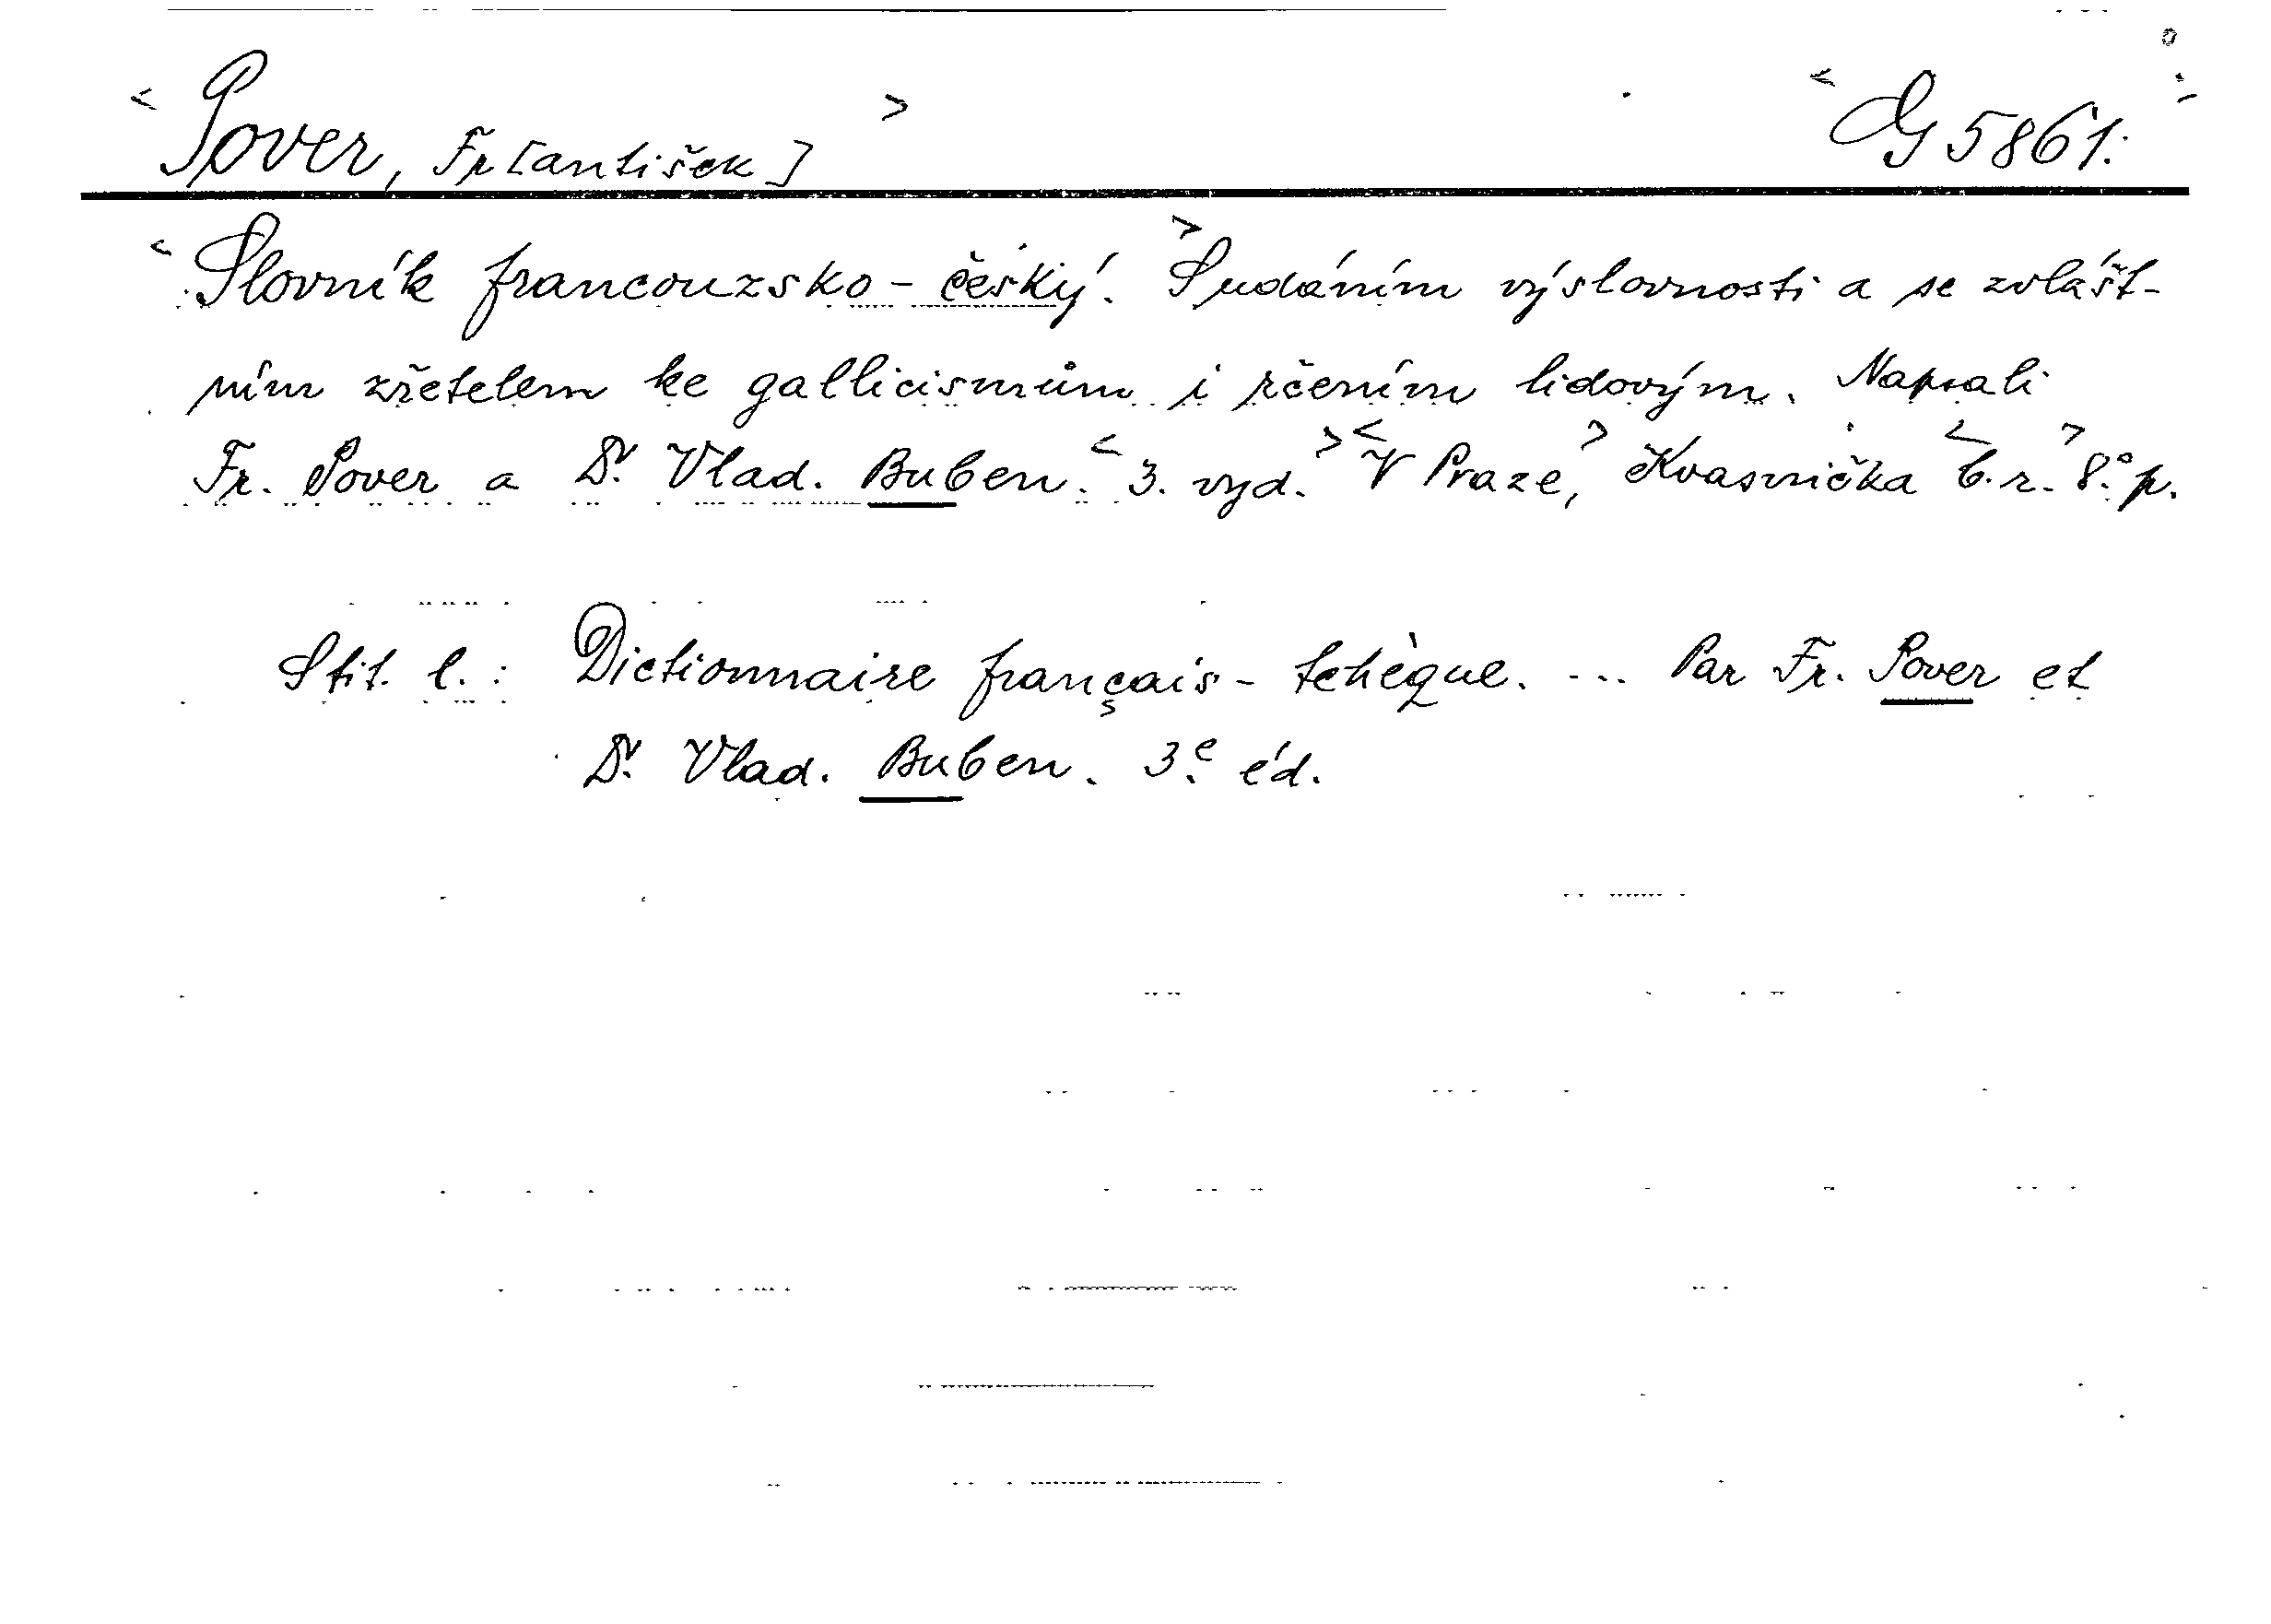 < Pover, Fr[antišek] > < G 5861. >
< Slovník francouzsko-český. > S udáním výslovnosti a se zvlášt-
ním zřetelem ke gallicismům i rčením lidovým. Napsali
Fr. Pover a Dr. Vlad. Buben. < 3. vyd. > < V Praze, > Kvasnička < b. r. > 8.° p.
S tit. l.: Dictionnaire français-tchèque. ... Par Fr. Pover et
Dr. Vlad. Buben. 3.e éd.